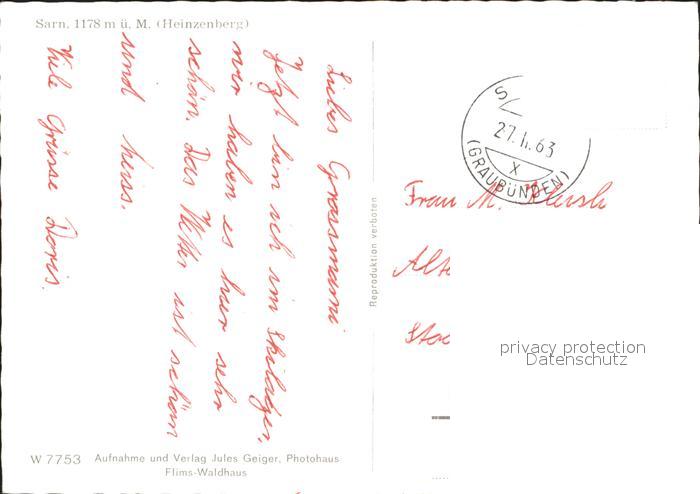 Sarn, 1178 m ü. M. (Heinzenberg)
Liebes Grosmami
Jetzt bin ich im Skilager,
wir haben es hier sehr
schön. Das Wetter ist schön
und heiss.
Viele Grüsse Doris.
Reproduktion verboten
W 7753 Aufnahme und Verlag Jules Geiger, Photohaus
Flims-Waldhaus
S
27. 1. 63
X
(GRAUBÜNDEN)
Frau M.
Alte
privacy protection
Datenschutz